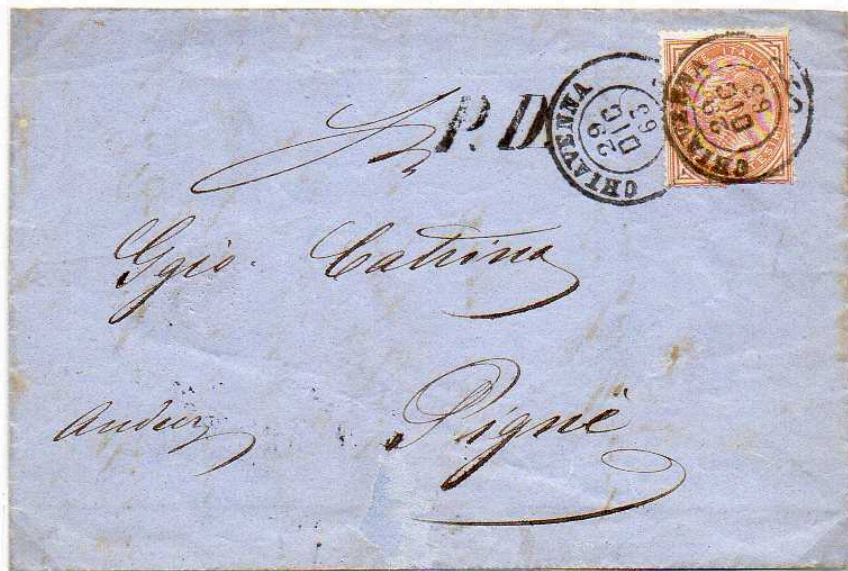 P.D.
CHIAVENNA
29
DIC
63
CHIAVENNA
29
DIC
63
Ggio. Catrina
Andeer
Pigné